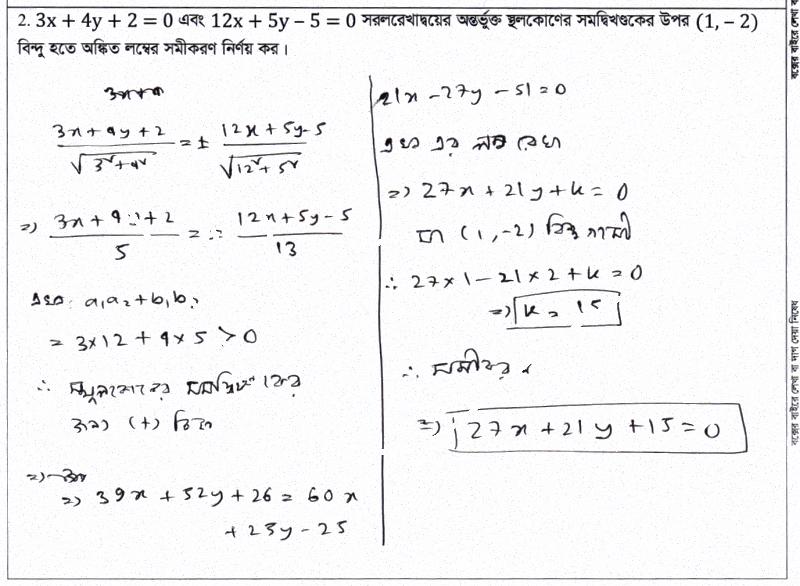 2. 3x + 4y + 2 = 0 এবং 12x + 5y – 5 = 0 সরলরেখাদ্বয়ের অন্তর্ভুক্ত স্থূলকোণের সমদ্বিখণ্ডকের উপর (1, – 2)
বিন্দু হতে অঙ্কিত লম্বের সমীকরণ নির্ণয় কর।
(3x + 4y + 2)/√(3² + 4²) = ± (12x + 5y - 5)/√(12² + 5²)
⇒ (3x + 4y + 2)/5 = ± (12x + 5y - 5)/13
এখন, a₁a₂ + b₁b₂
= 3×12 + 4×5 > 0
∴ স্থূলকোণের সমদ্বিখণ্ডকের
জন্য (+) চিহ্ন
⇒ 39x + 52y + 26 = 60x
+ 25y - 25
21x - 27y - 51 = 0
এখন এর লম্ব রেখা
⇒ 27x + 21y + k = 0
যা (1, -2) বিন্দুগামী
∴ 27×1 - 21×2 + k = 0
⇒ k = 15
∴ সমীকরণ
⇒ 27x + 21y + 15 = 0
বক্সের বাইরে লেখা বা দাগ দেয়া নিষেধ